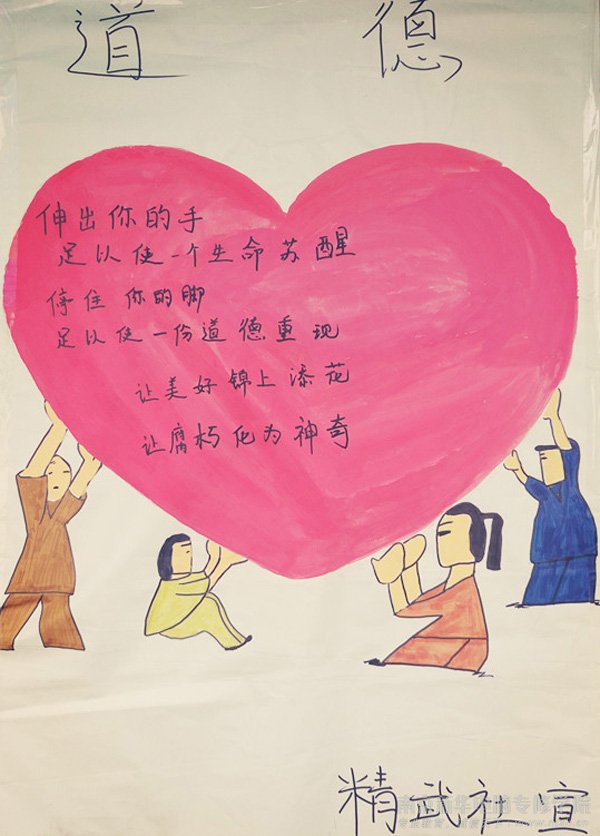 道 德
伸出你的手
足以使一个生命苏醒
停住你的脚
足以使一份道德重现
让美好锦上添花
让腐朽化为神奇
精武社宣